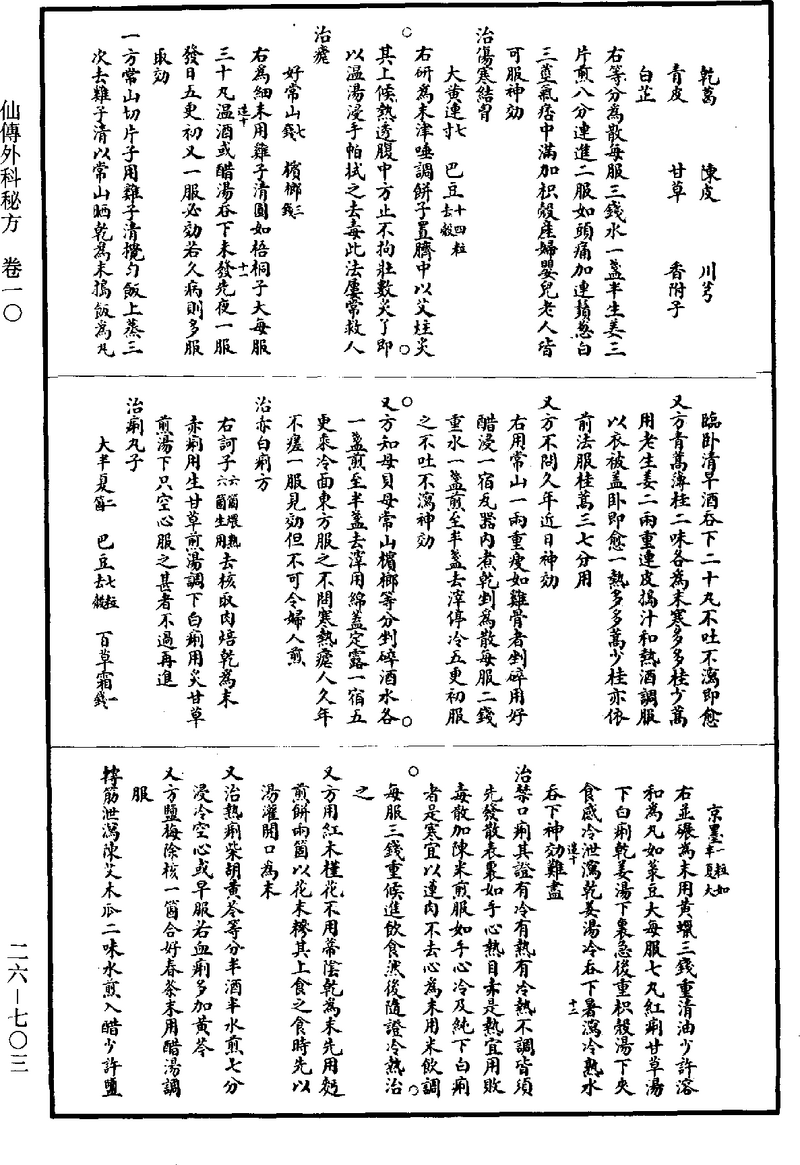 乾葛　陳皮　川芎
青皮　甘草　香附子
白芷
右等分為散每服三錢水一盞半生姜三
片煎八分連進二服如頭痛加連鬚葱白
三莖氣痞中滿加枳殼産婦嬰兒老人皆
可服神効
治傷寒結胷
大黄連寸七　巴豆十四粒去殼
右研為末津唾調餅子置臍中以艾炷灸
其上候熱透腹中方止不拘壯數灸了即
以温湯浸手帕拭之去毒此法屢常救人
治瘧
好常山七錢　檳榔三錢
右為細末用雞子清圓如梧桐子大每服
三十丸温酒或醋湯吞下未發先夜一服
發日五更初又一服必効若久病則多服
取効
一方常山切片子用雞子清攪勻飯上蒸三
次去雞子清以常山晒乾為末搗飯為丸
臨卧清早酒吞下二十丸不吐不瀉即愈
又方青蒿薄桂二味各為末寒多多桂少蒿
用老生姜二兩重連皮搗汁和熱酒調服
以衣被蓋卧即愈一熱多多蒿少桂亦依
前法服桂蒿三七分用
又方不問久年近日神効
右用常山一兩重瘦如雞骨者剉碎用好
醋浸一宿瓦器内煮乾剉為散每服二錢
重水一盞煎至半盞去滓停冷五更初服
之不吐不瀉神効
又方知母貝母常山檳榔等分剉碎酒水各
一盞煎至半盞去滓用綿蓋定露一宿五
更來冷面東方服之不問寒熱瘧人久年
不瘥一服見効但不可令婦人煎
治赤白痢方
右訶子六箇煨熟六箇生用去核取肉焙乾為末
赤痢用生甘草煎湯調下白痢用炙甘草
煎湯下只空心服之甚者不過再進
治痢丸子
大半夏二箇　巴豆七粒去殼　百草霜一錢
京墨一粒如半夏大
右並碾為末用黄蠟三錢重清油少許溶
和為丸如菉豆大每服七丸紅痢甘草湯
下白痢乾姜湯下裏急後重枳殼湯下夾
食感冷泄瀉乾姜湯冷吞下暑瀉冷熟水
吞下神効難盡
治禁口痢其證有冷有熱有冷熱不調皆須
先發散表裏如手心熱目赤是熱宜用敗
毒散加陳米煎服如手心冷及純下白痢
者是寒宜以連肉不去心為末用米飲調
每服三錢重候進飲食然後隨證冷熱治
之
又方用紅木槿花不用蒂陰乾為末先用麪
煎餅兩箇以花末糝其上食之食時先以
湯灌開口為末
又治熱痢柴胡黄芩等分半酒半水煎七分
浸冷空心或早服若血痢多加黄芩
又方鹽梅除核一箇合好春茶末用醋湯調
服
轉筋泄瀉陳艾木瓜二味水煎入醋少許鹽
仙傳外科秘方　卷一〇
二六－七〇三